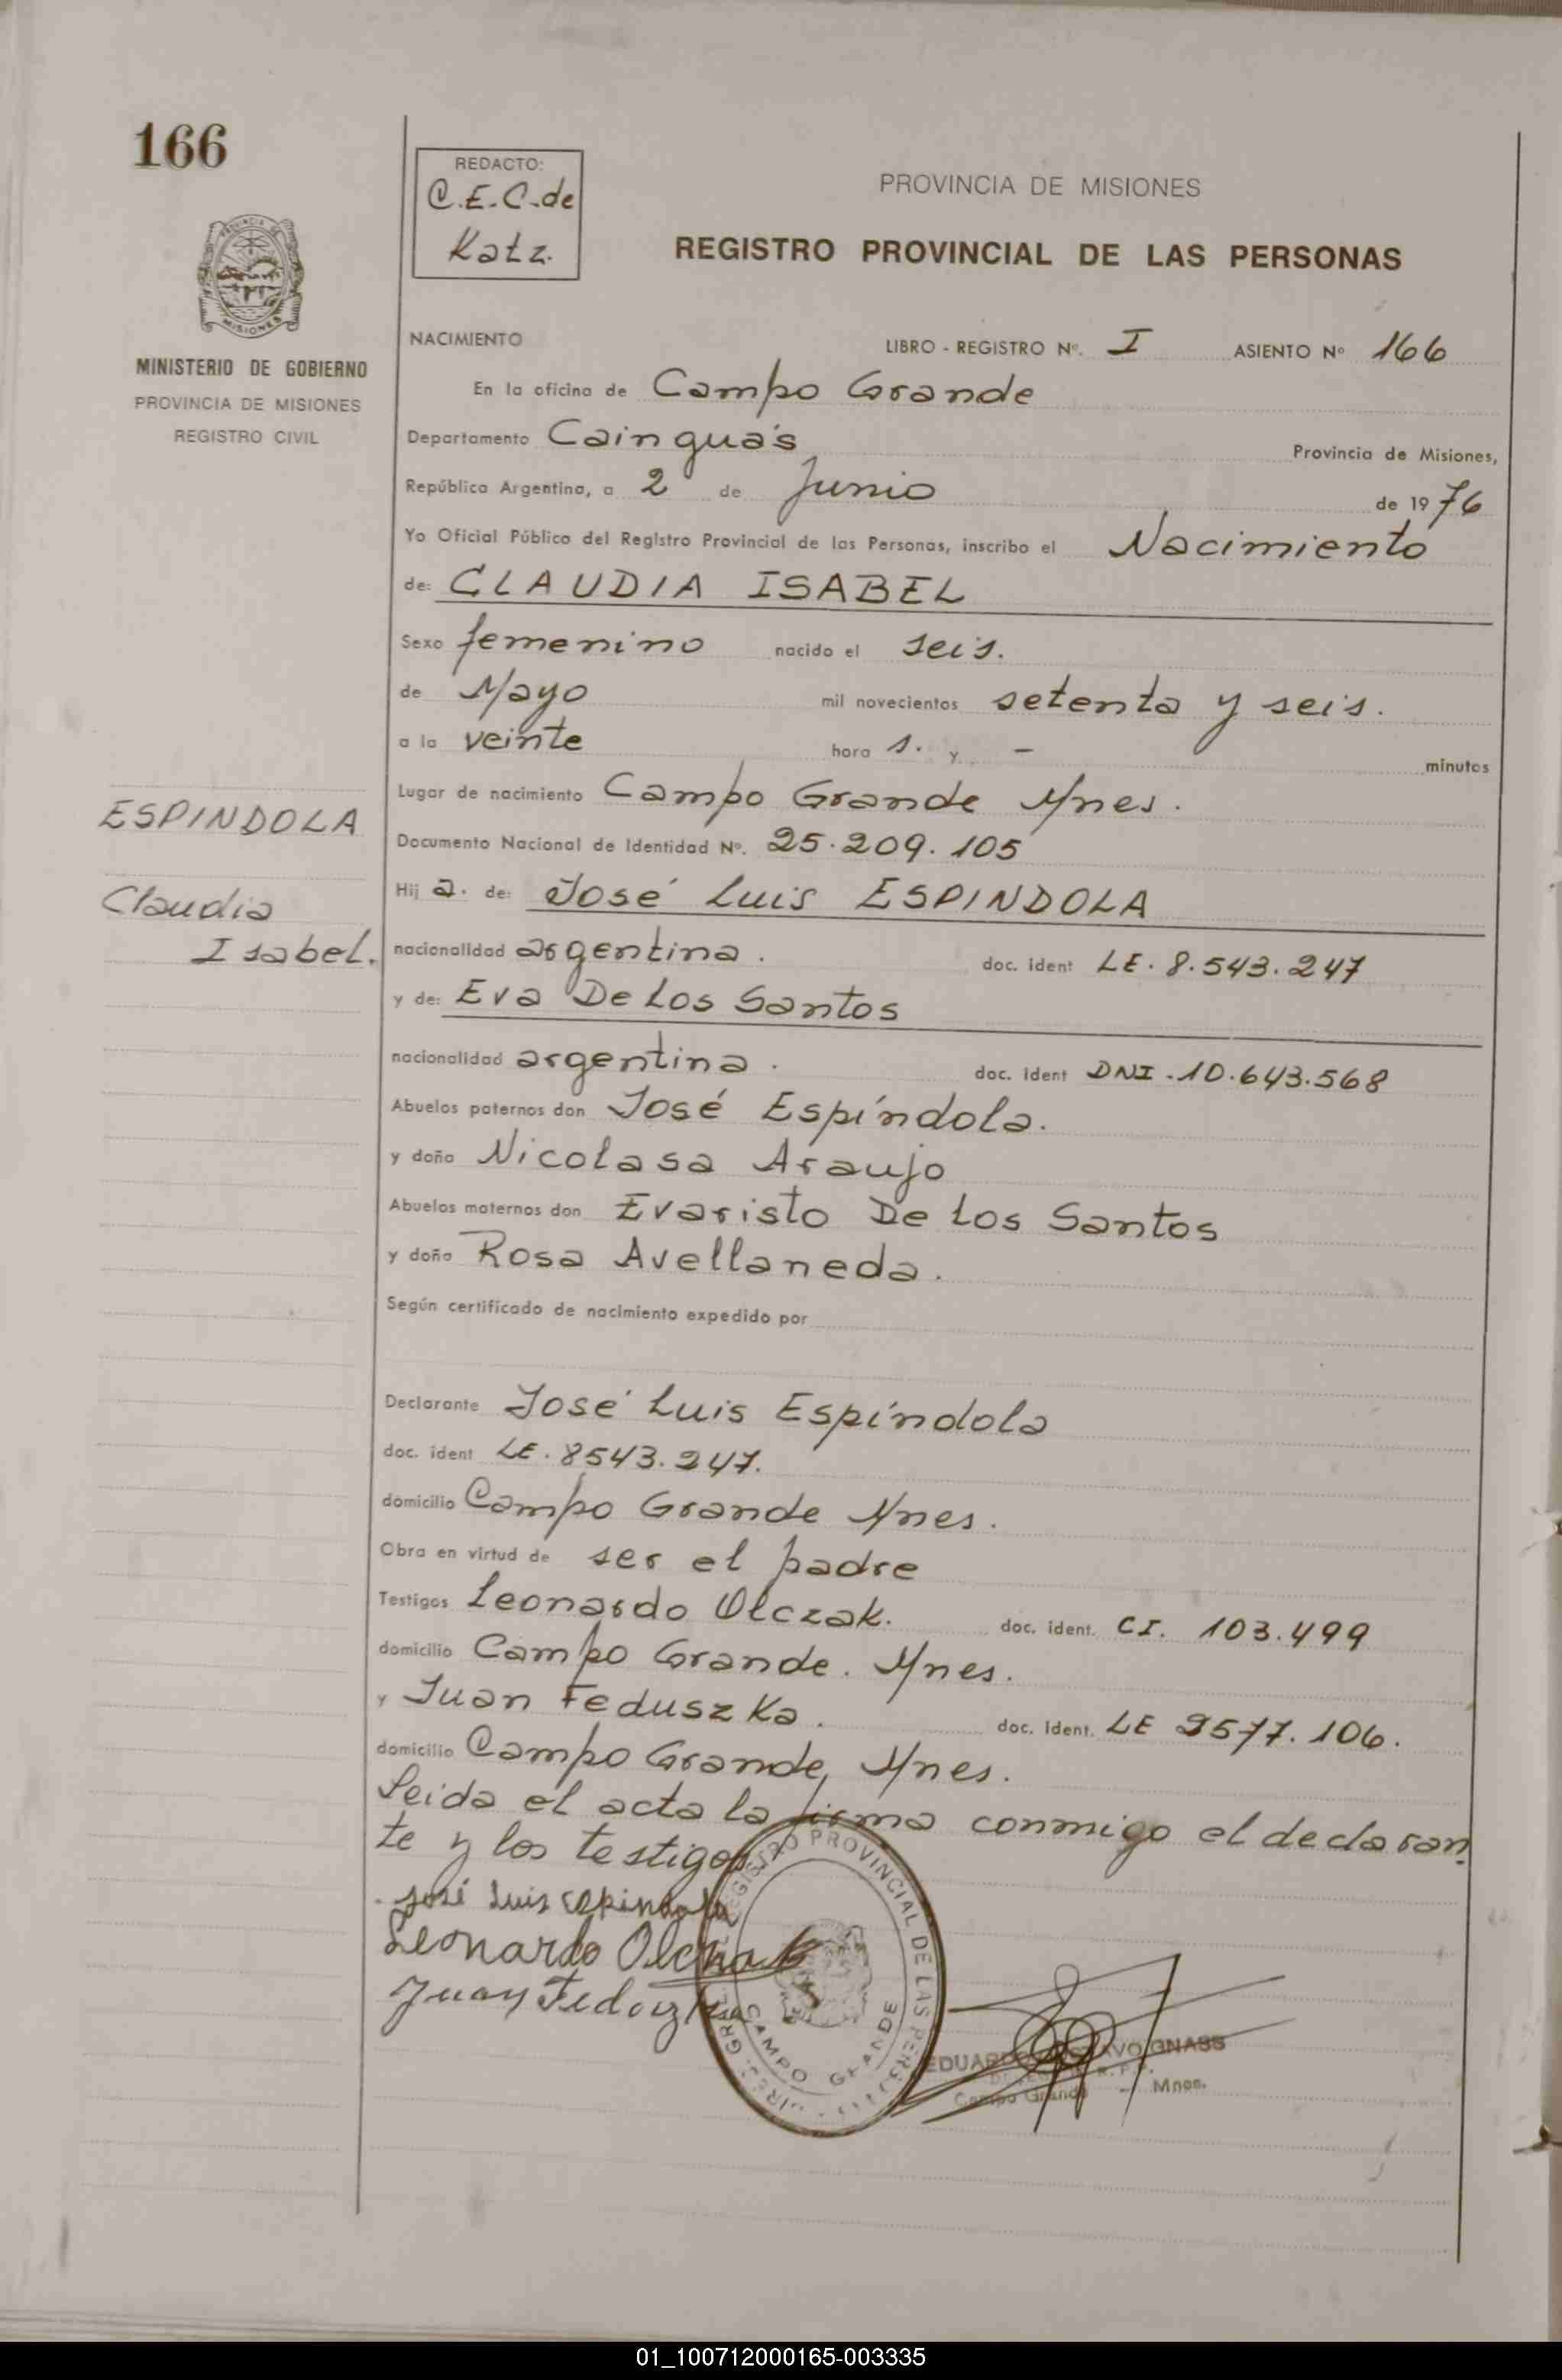 166
REDACTO:
C.E.C. de
Katz.
PROVINCIA DE MISIONES
REGISTRO PROVINCIAL DE LAS PERSONAS
MINISTERIO DE GOBIERNO
PROVINCIA DE MISIONES
REGISTRO CIVIL
NACIMIENTO LIBRO - REGISTRO Nº. I ASIENTO Nº 166
En la oficina de Campo Grande
Departamento Cainguás Provincia de Misiones,
República Argentina, a 2 de Junio de 1976
Yo Oficial Público del Registro Provincial de las Personas, inscribo el Nacimiento
de: CLAUDIA ISABEL
Sexo femenino nacido el seis.
de Mayo mil novecientos setenta y seis.
a la veinte hora s. y - minutos
Lugar de nacimiento Campo Grande Mnes.
ESPINDOLA
Documento Nacional de Identidad Nº. 25.209.105
Hij a. de: José Luis ESPINDOLA
Claudia
Isabel.
nacionalidad argentina. doc. ident LE. 8.543.247
y de: Eva De Los Santos
nacionalidad argentina. doc. ident DNI. 10.643.568
Abuelos paternos don José Espíndola.
y doña Nicolasa Araujo
Abuelos maternos don Evaristo De Los Santos
y doña Rosa Avellaneda.
Según certificado de nacimiento expedido por
Declarante José Luis Espíndola
doc. ident LE. 8543.247.
domicilio Campo Grande Mnes.
Obra en virtud de ser el padre
Testigos Leonardo Olczak. doc. ident. CI. 103.499
domicilio Campo Grande. Mnes.
y Juan Feduszka. doc. ident. LE 9577.106.
domicilio Campo Grande, Mnes.
Leida el acta la firma conmigo el declaran
te y los testigos
José Luis Espindola
Leonardo Olchak
Juan
REGISTRO PROVINCIAL DE LAS PERSONAS
CAMPO GRANDE
EDUARDO GUSTAVO GNASS
Campo Grande - Mnes.
01_100712000165-003335